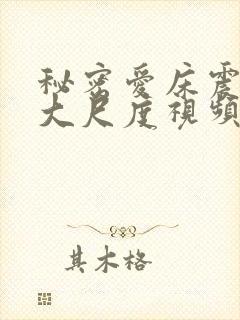 秘密愛床震
大尺度視頻
其木格